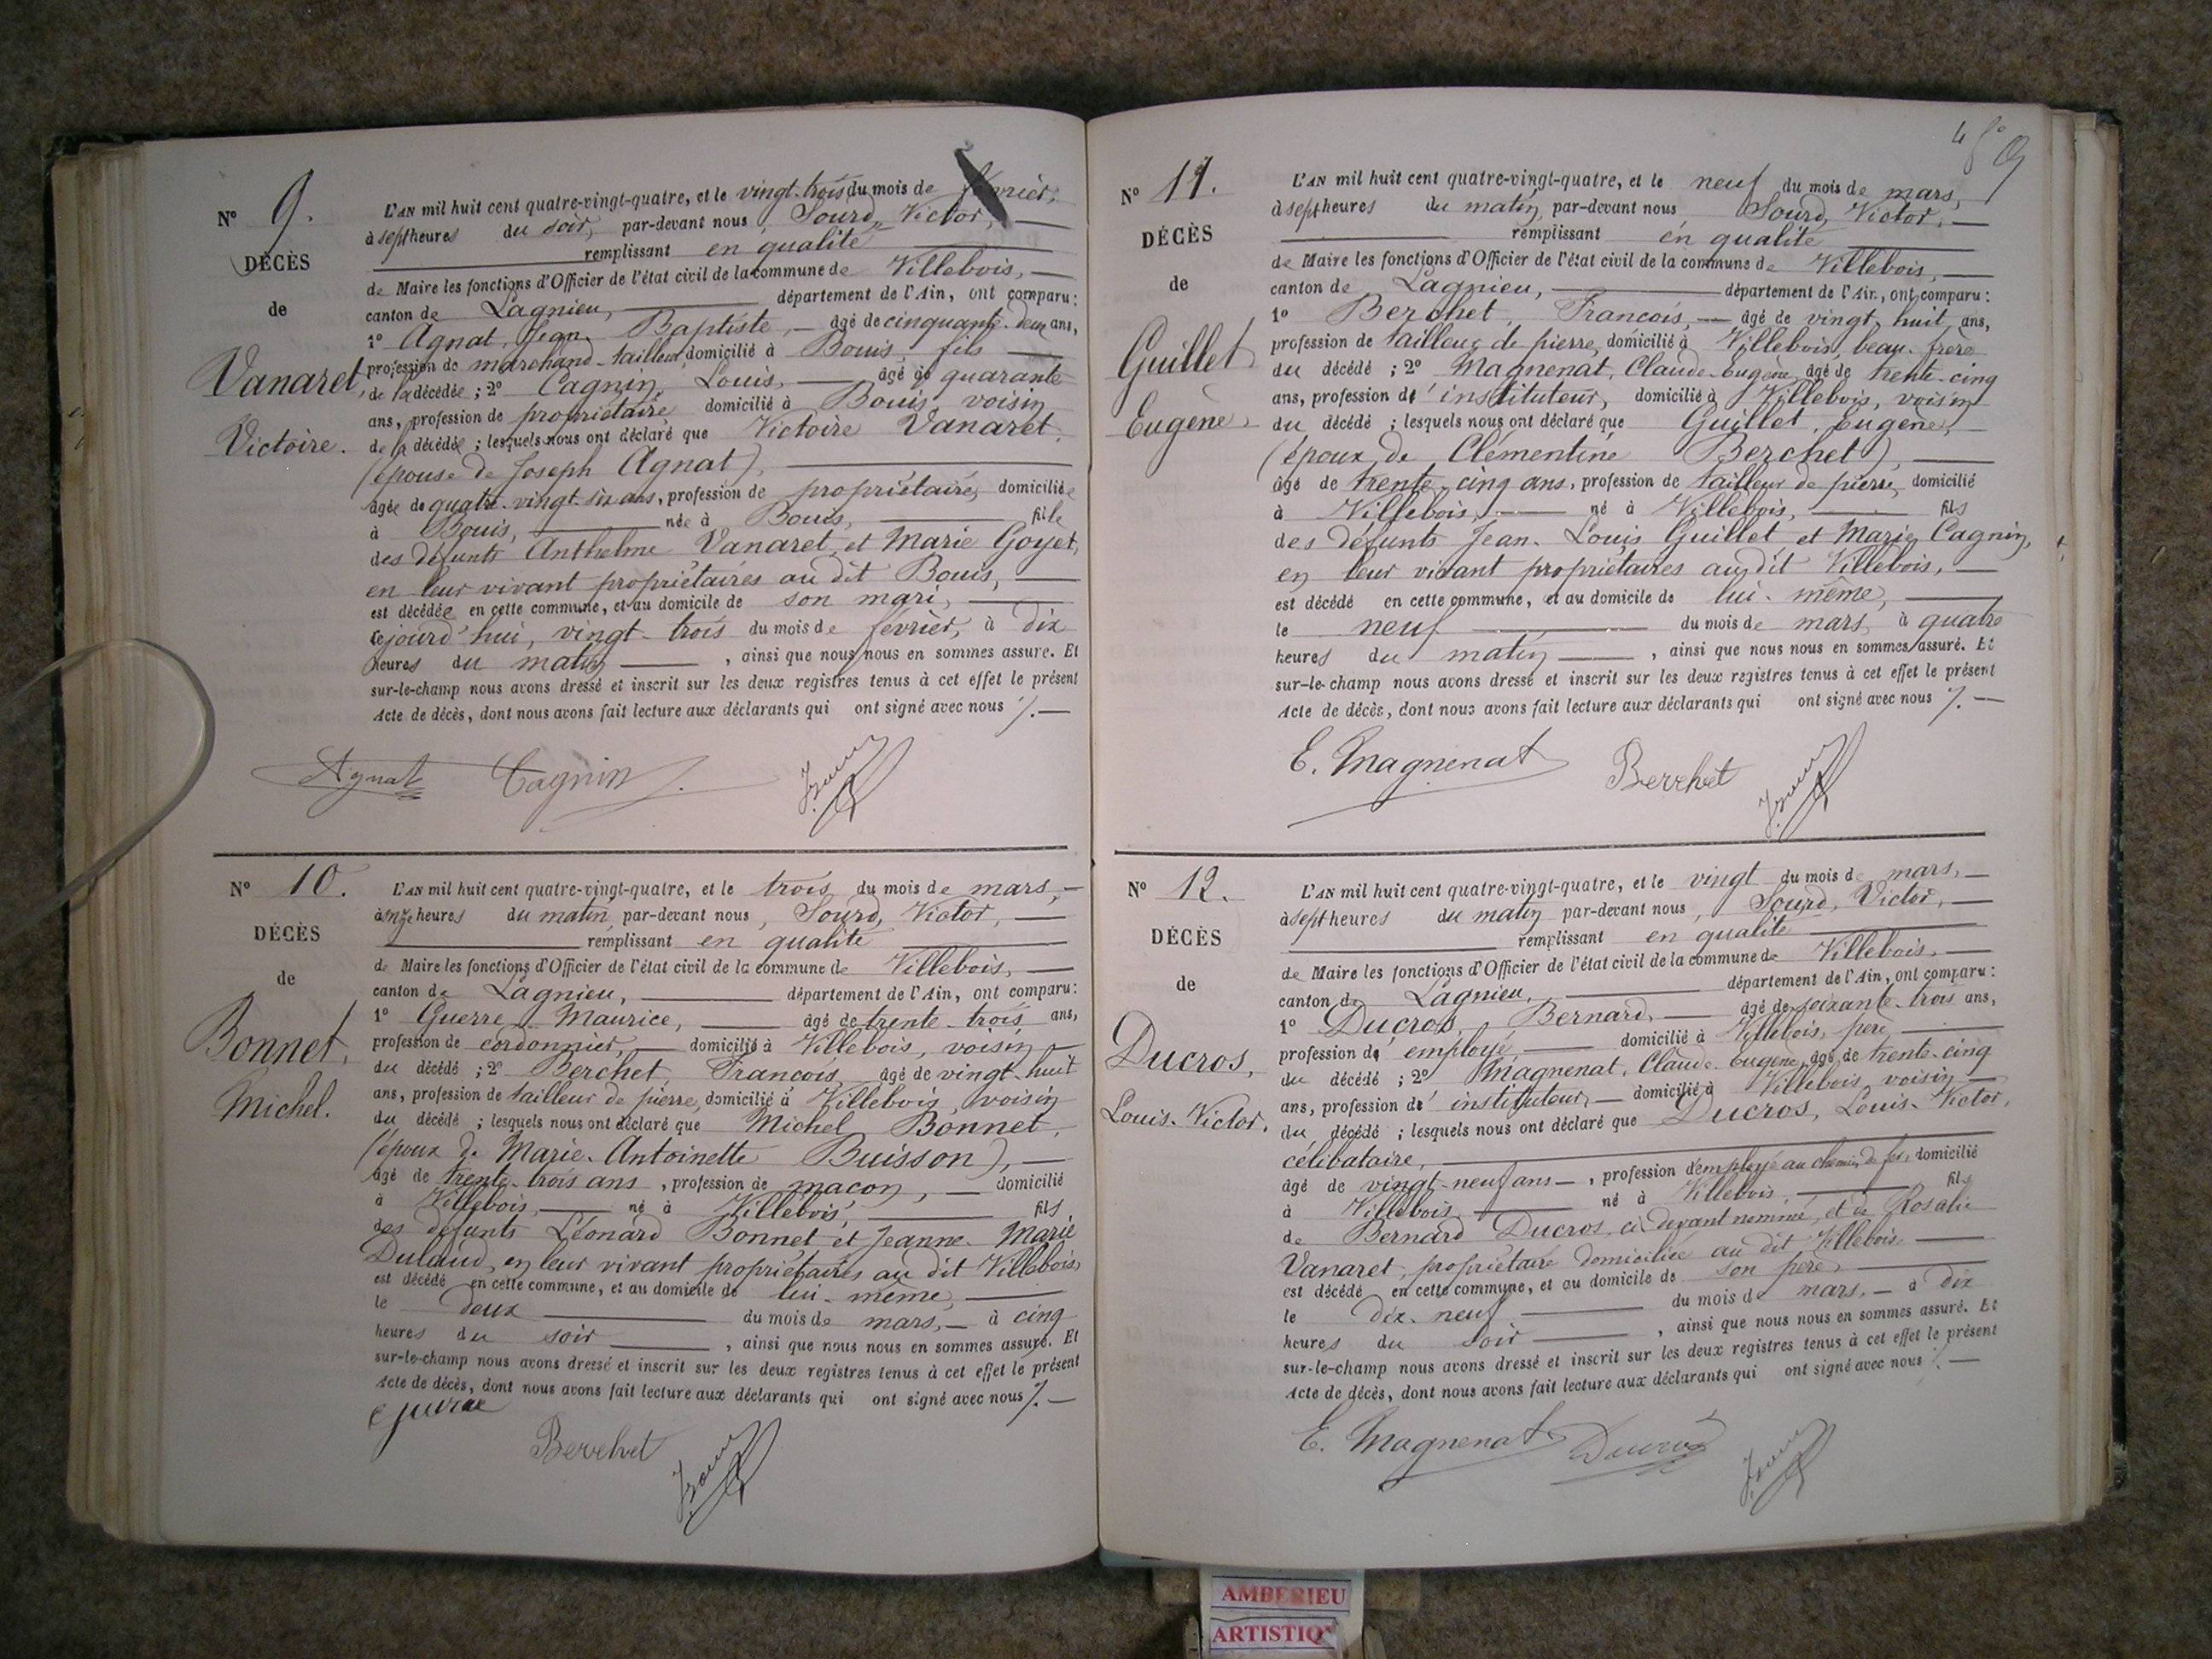 N° 9.
DÉCÈS
de
Vanaret,
Victoire.
L'AN mil huit cent quatre-vingt-quatre, et le vingt-trois du mois de février,
à sept heures du soir, par-devant nous, Sourd, Victor,
remplissant en qualité
de Maire les fonctions d'Officier de l'état civil de la commune de Villebois,
canton de Lagnieu, département de l'Ain, ont comparu:
1° Agnat, Jean Baptiste, âgé de cinquante-deux ans,
profession de marchand-tailleur, domicilié à Bouis, fils
de la décédée; 2° Cagnin, Louis, âgé de quarante
ans, profession de propriétaire domicilié à Bouis, voisin
de la décédée; lesquels nous ont déclaré que Victoire Vanaret,
(épouse de Joseph Agnat),
âgée de quatre-vingt-six ans, profession de propriétaire, domiciliée
à Bouis, née à Bouis, fille
des défunts Anthelme Vanaret, et Marie Goyet,
en leur vivant propriétaires au dit Bouis,
est décédée en cette commune, et au domicile de son mari,
cejourd'hui, vingt-trois du mois de février, à dix
heures du matin, ainsi que nous nous en sommes assuré. Et
sur-le-champ nous avons dressé et inscrit sur les deux registres tenus à cet effet le présent
Acte de décès, dont nous avons fait lecture aux déclarants qui ont signé avec nous /.
Agnat Cagnin
N° 10.
DÉCÈS
de
Bonnet,
Michel.
L'AN mil huit cent quatre-vingt-quatre, et le trois du mois de mars,
à onze heures du matin, par-devant nous, Sourd, Victor,
remplissant en qualité
de Maire les fonctions d'Officier de l'état civil de la commune de Villebois,
canton de Lagnieu, département de l'Ain, ont comparu:
1° Guerre, Maurice, âgé de trente-trois ans,
profession de cordonnier, domicilié à Villebois, voisin
du décédé; 2° Berchet, Francois, âgé de vingt-huit
ans, profession de tailleur de pierre, domicilié à Villebois, voisin
du décédé; lesquels nous ont déclaré que Michel Bonnet,
(époux de Marie-Antoinette Buisson),
âgé de trente-trois ans, profession de macon, domicilié
à Villebois, né à Villebois, fils
des défunts Léonard Bonnet et Jeanne-Marie
Dulaud, en leur vivant propriétaires au dit Villebois,
est décédé en cette commune, et au domicile de lui-même,
le deux du mois de mars, à cinq
heures du soir, ainsi que nous nous en sommes assuré. Et
sur-le-champ nous avons dressé et inscrit sur les deux registres tenus à cet effet le présent
Acte de décès, dont nous avons fait lecture aux déclarants qui ont signé avec nous /.
Berchet
N° 11.
DÉCÈS
de
Guillet
Eugène.
L'AN mil huit cent quatre-vingt-quatre, et le neuf du mois de mars,
à sept heures du matin, par-devant nous Sourd, Victor,
remplissant en qualité
de Maire les fonctions d'Officier de l'état civil de la commune de Villebois,
canton de Lagnieu, département de l'Ain, ont comparu:
1° Berchet, Francois, âgé de vingt-huit ans,
profession de tailleur de pierre, domicilié à Villebois, beau-frère
du décédé; 2° Magnenat, Claude-Eugène, âgé de trente-cinq
ans, profession d'instituteur, domicilié à Villebois, voisin
du décédé; lesquels nous ont déclaré que Guillet, Eugène,
(époux de Clémentine Berchet),
âgé de trente-cinq ans, profession de tailleur de pierre, domicilié
à Villebois, né à Villebois, fils
des défunts Jean-Louis Guillet et Marie Cagnin,
en leur vivant propriétaires au dit Villebois,
est décédé en cette commune, et au domicile de lui-même,
le neuf du mois de mars, à quatre
heures du matin, ainsi que nous nous en sommes assuré. Et
sur-le-champ nous avons dressé et inscrit sur les deux registres tenus à cet effet le présent
Acte de décès, dont nous avons fait lecture aux déclarants qui ont signé avec nous /.
E. Magnenat Berchet
N° 12.
DÉCÈS
de
Ducros,
Louis-Victor.
L'AN mil huit cent quatre-vingt-quatre, et le vingt du mois de mars,
à sept heures du matin par-devant nous, Sourd, Victor,
remplissant en qualité
de Maire les fonctions d'Officier de l'état civil de la commune de Villebois,
canton de Lagnieu, département de l'Ain, ont comparu:
1° Ducros, Bernard, âgé de soixante-trois ans,
profession d'employé, domicilié à Villebois, père
du décédé; 2° Magnenat, Claude-Eugène, âgé de trente-cinq
ans, profession d'instituteur, domicilié à Villebois, voisin
du décédé; lesquels nous ont déclaré que Ducros, Louis-Victor,
célibataire,
âgé de vingt-neuf ans, profession d'employé au chemin de fer, domicilié
à Villebois, né à Villebois, fils
de Bernard Ducros, ci devant nommé, et de Rosalie
Vanaret, propriétaire domiciliée au dit Villebois
est décédé en cette commune, et au domicile de son père,
le dix-neuf du mois de mars, à dix
heures du soir, ainsi que nous nous en sommes assuré. Et
sur-le-champ nous avons dressé et inscrit sur les deux registres tenus à cet effet le présent
Acte de décès, dont nous avons fait lecture aux déclarants qui ont signé avec nous /.
E. Magnenat Ducros
AMBERIEU
ARTISTIQ